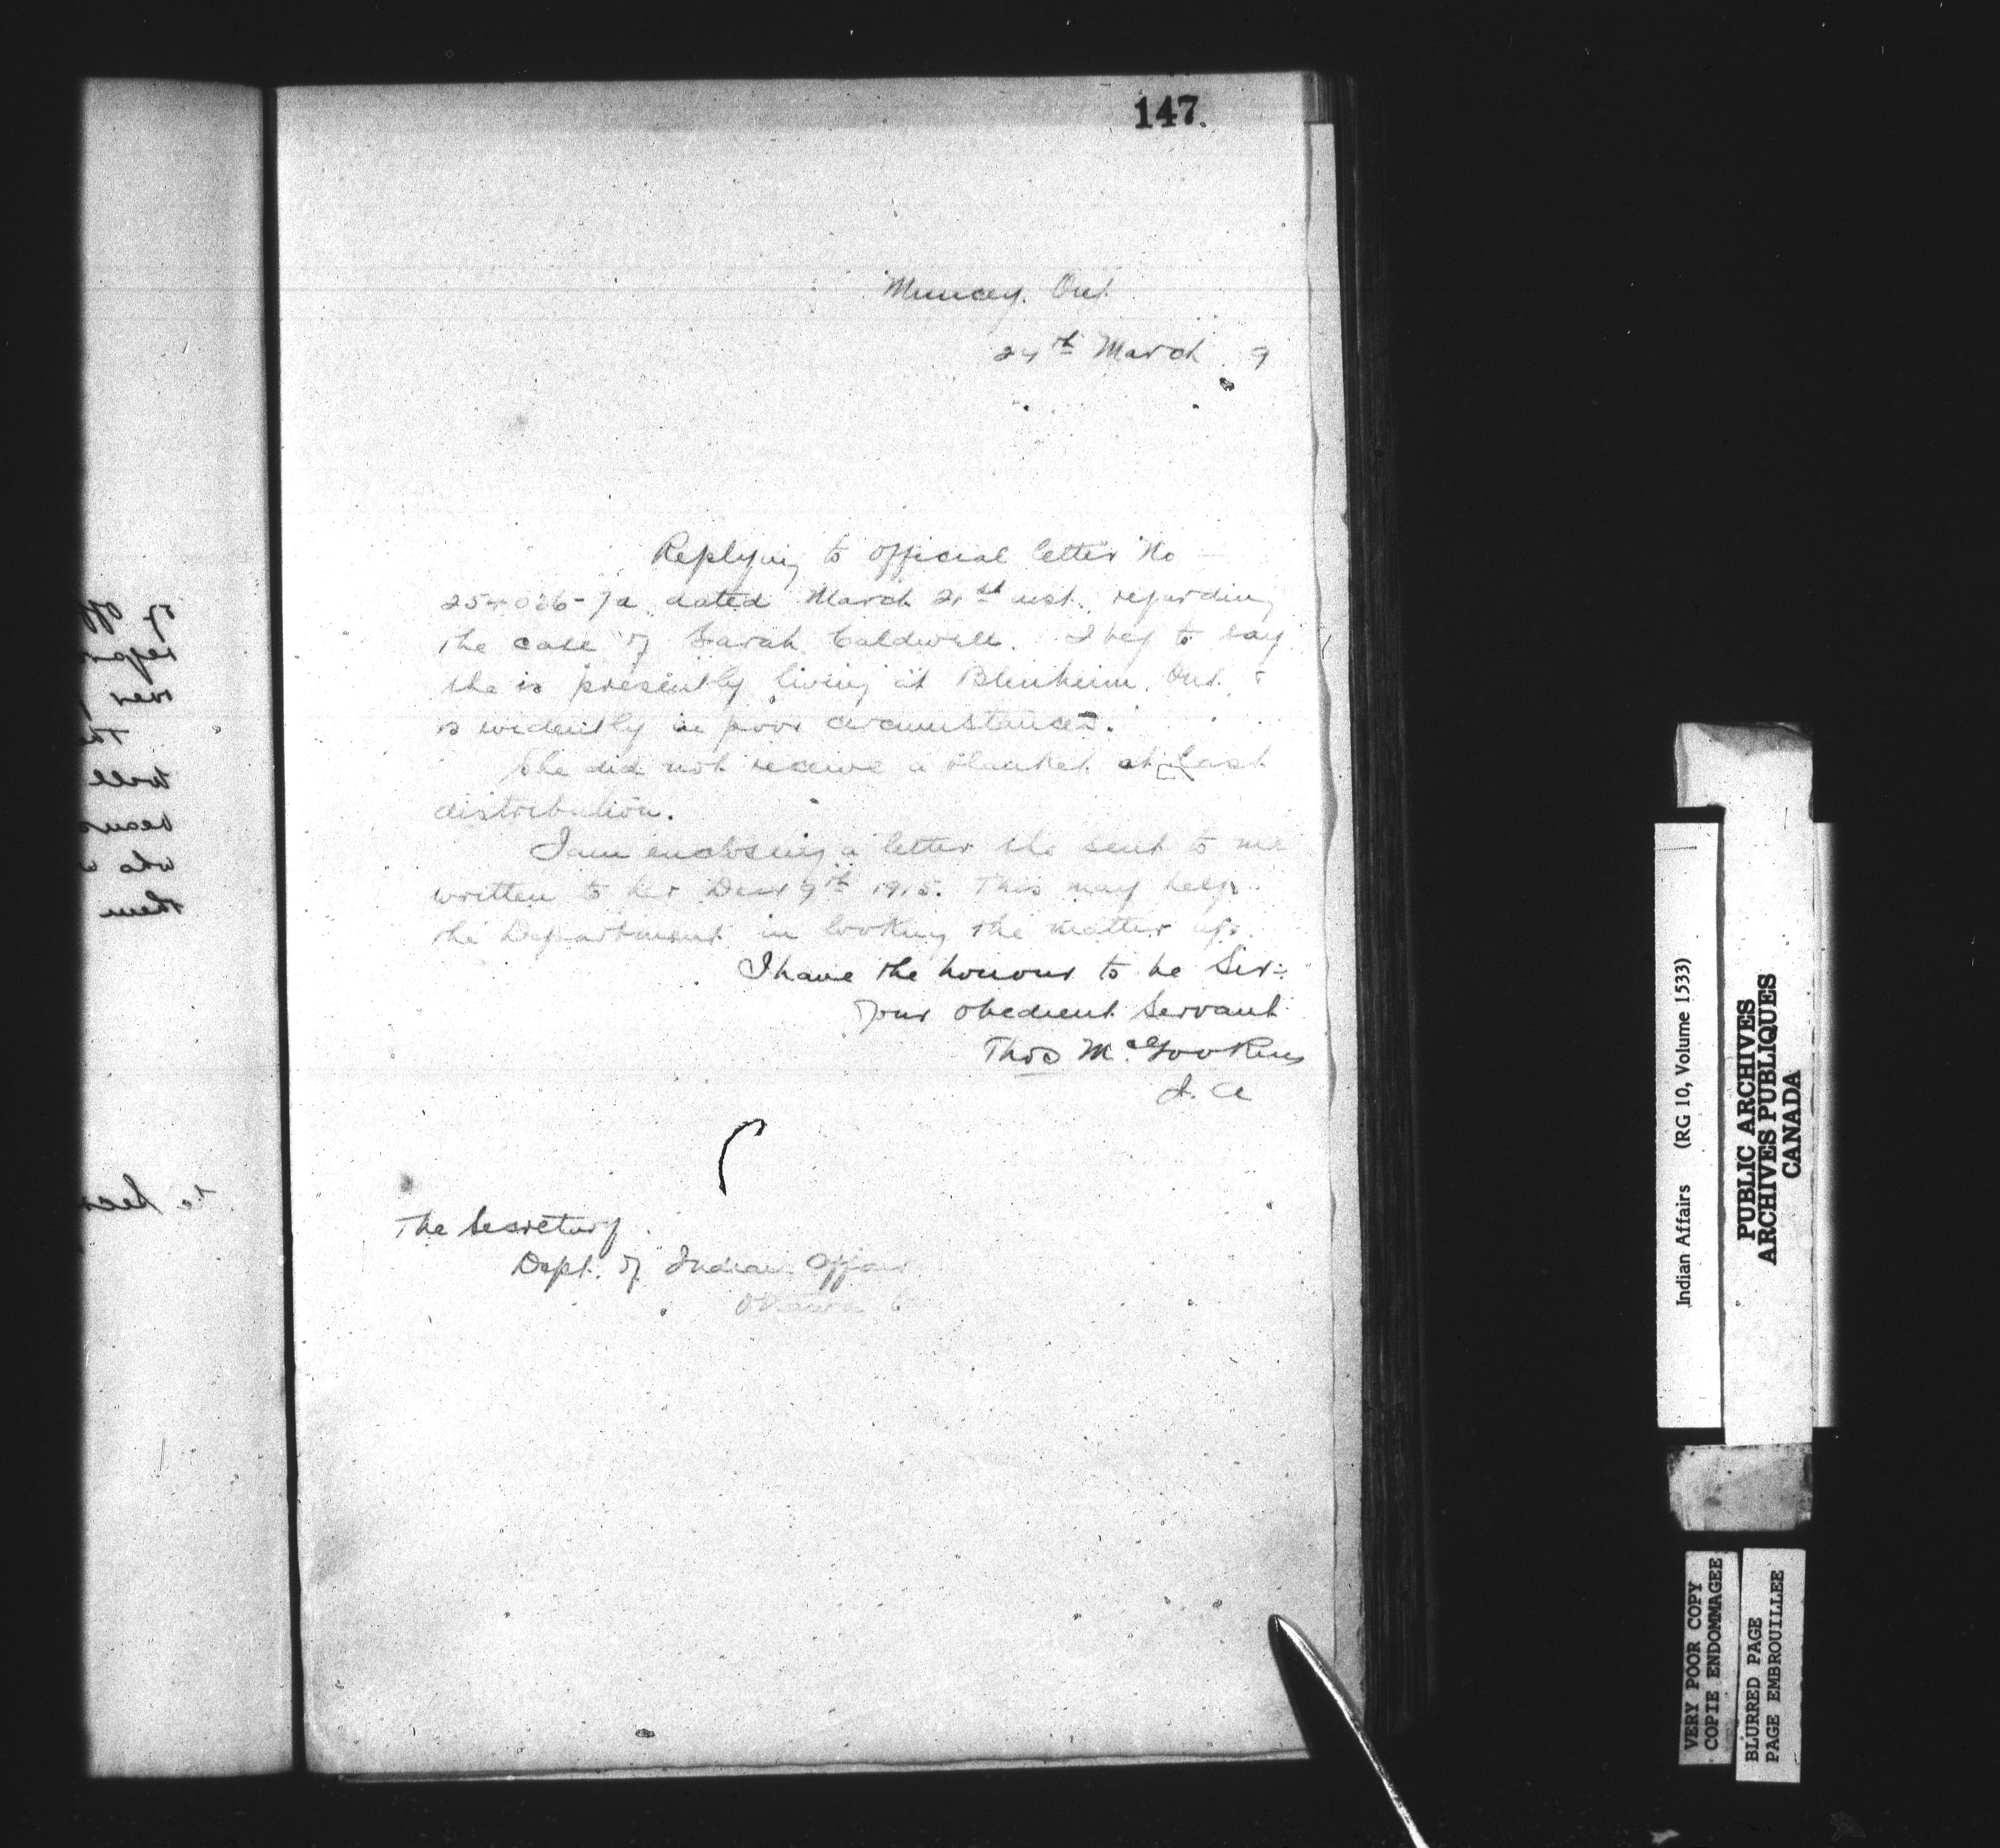 147.
Muncey. Ont.
24th March 9
Replying to official letter No
dated March 21st inst. regarding
the case of Sarah Caldwell. I beg to say
she is presently living at Blenheim, Ont. &
is evidently in poor circumstances.
She did not receive a blanket at last
distribution.
I am enclosing a letter she sent to me
written to her Decr 9th 1915. This may help
the Department in looking the matter up.
I have the honour to be Sir:
Your obedient Servant
Thos
I. A
The Secretary.
Dept. of Indian Affairs
Ottawa
Indian Affairs (RG 10, Volume 1533)
PUBLIC ARCHIVES
ARCHIVES PUBLIQUES
CANADA
VERY POOR COPY
COPIE ENDOMMAGEE
BLURRED PAGE
PAGE EMBROUILLEE